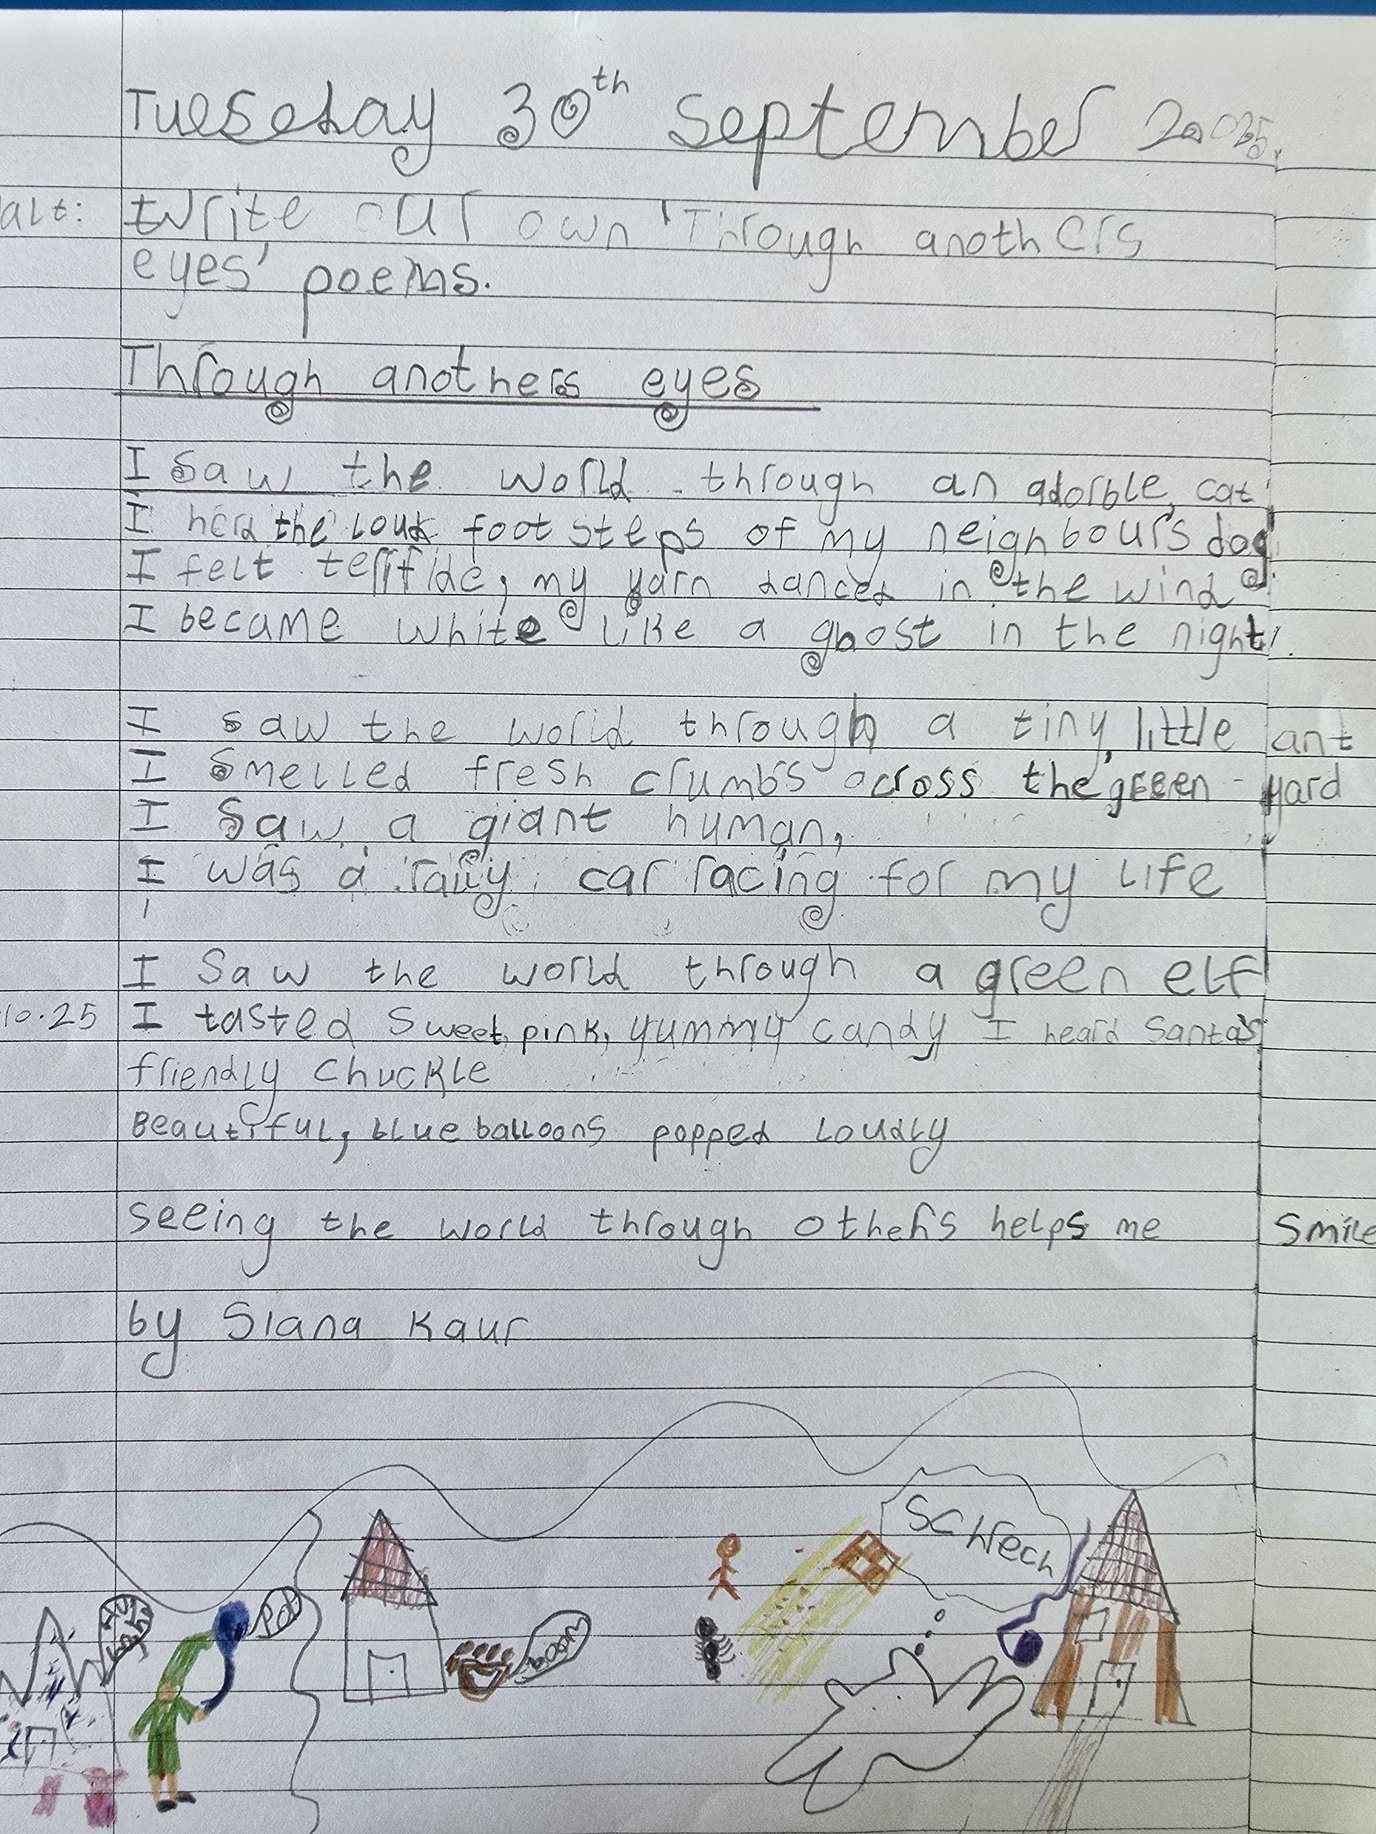 Tuesday 30th September 2025.
alt: Write our own 'Through anothers
eyes' poems.
Through anothers eyes
I saw the world through an adorble, cat
I herd the loud foot steps of my neighbour's dog
I felt terrifide, my yarn danced in the wind
I became white like a ghost in the night!
I saw the world through a tiny, little ant
I smelled fresh crumbs across the green yard
I saw a giant human,
I was a rally car racing for my life
I saw the world through a green elf
10.25 I tasted sweet, pink, yummy candy I heard Santa's
friendly chuckle
Beautiful, blue balloons popped loudly
seeing the world through others helps me smile
by Siana Kaur
Schrech
Pop
boom